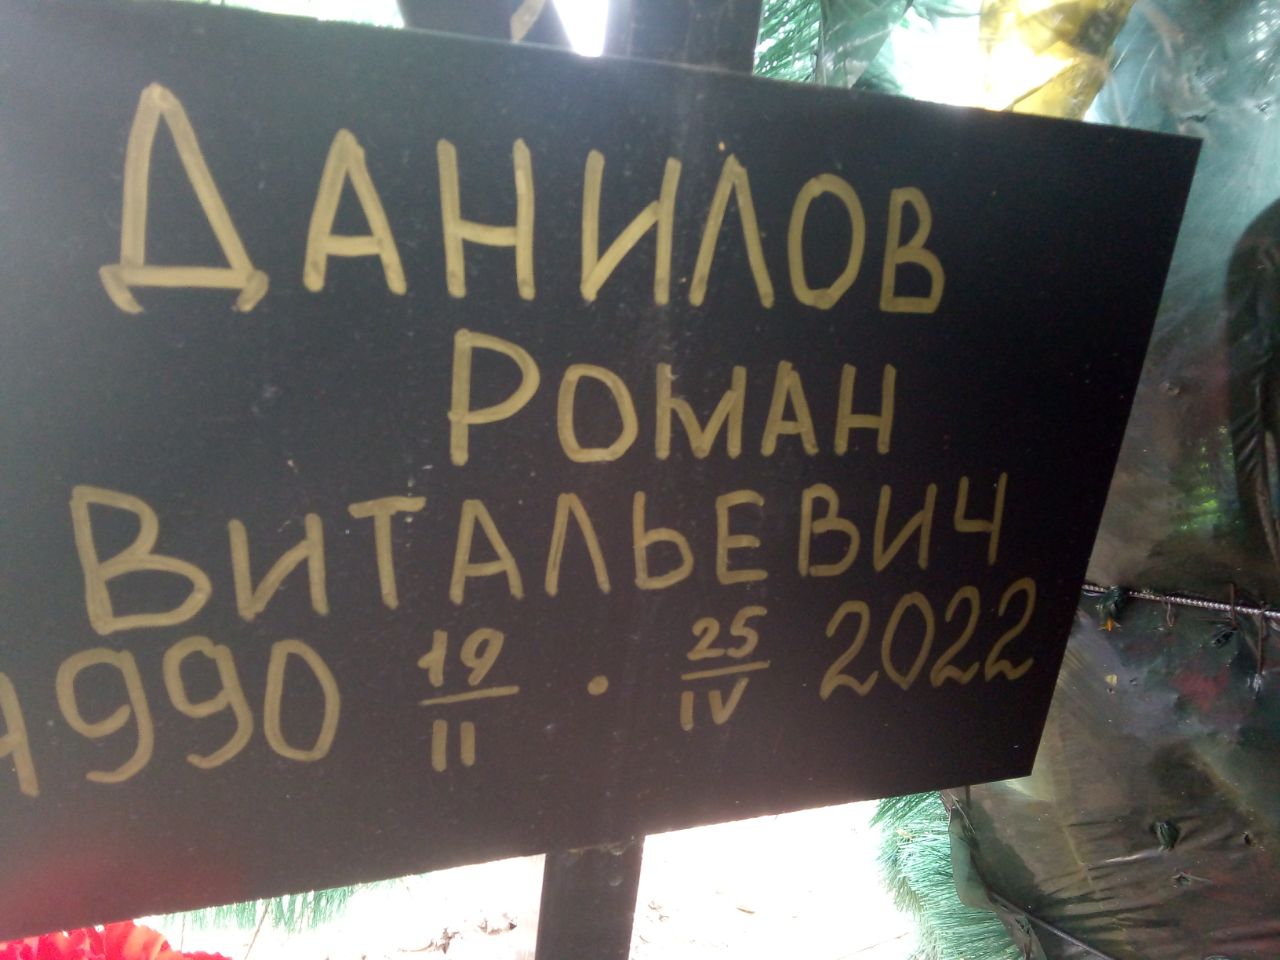 ДАНИЛОВ
РОМАН
ВИТАЛЬЕВИЧ
1990 19/II · 25/IV 2022